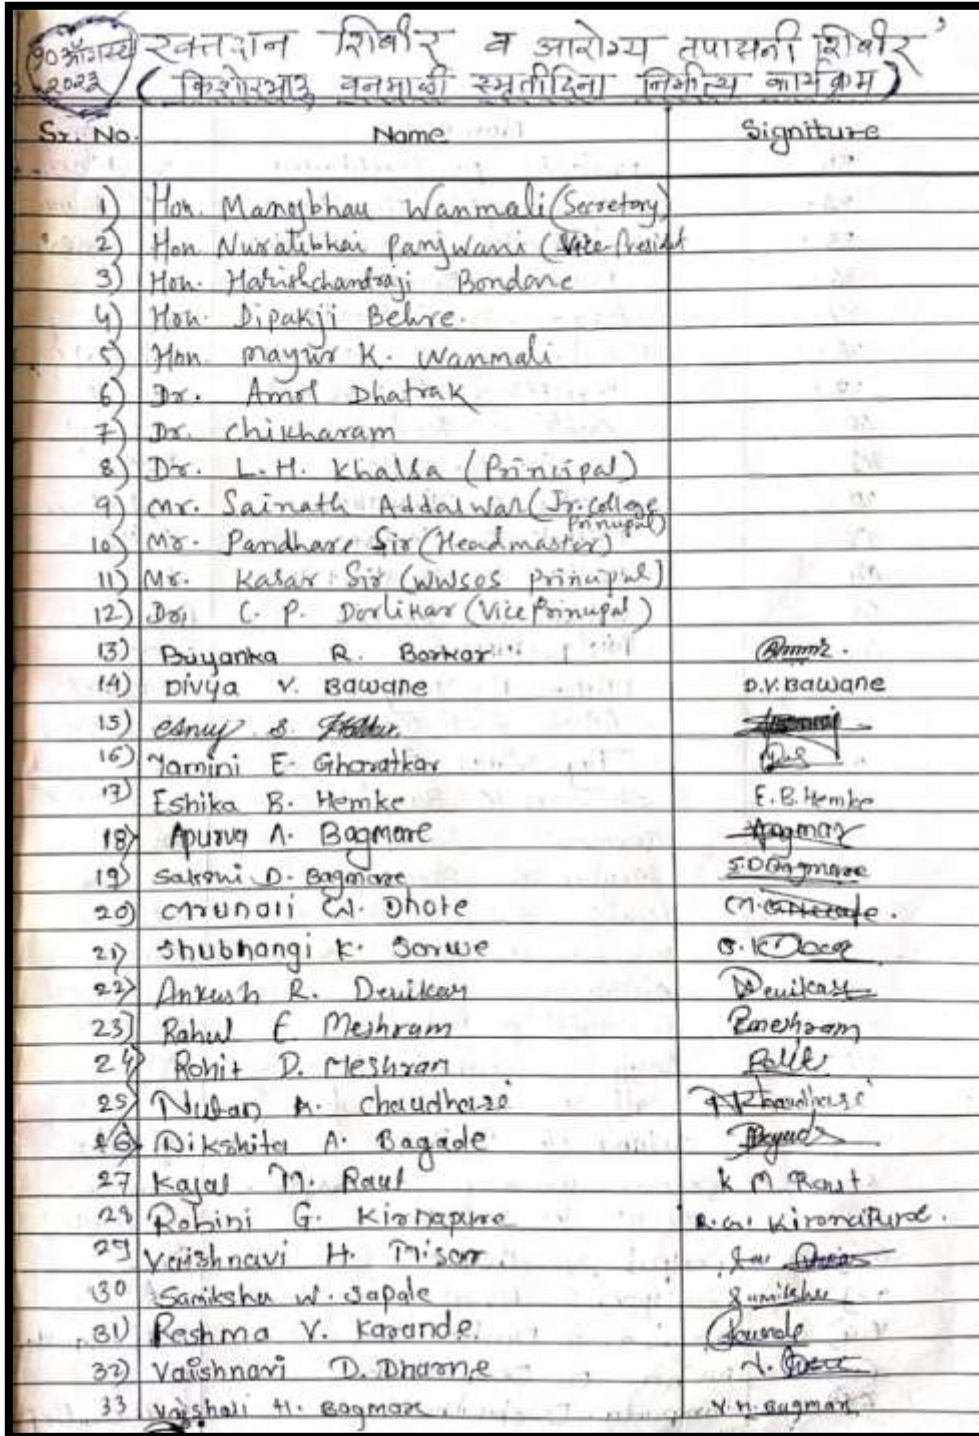 १० ऑगस्ट २०२३
रक्तदान शिबीर व आरोग्य तपासनी शिबीर
(किशोरभाऊ वनमाळी स्मृतीदिना निमीत्य कार्यक्रम)
Sr. No. Name Signiture
1) Hon. Manojbhau Wanmali (Secretory)
2) Hon Nuratibhai Panjwani (Vice-Presidt
3) Hon. Harishchandraji Bondane
4) Hon. Dipakji Behre.
5) Hon. Mayur K. Wanmali
6) Dr. Amol Dhatrak
7) Dr. Chikharam
8) Dr. L.H. Khalsa (Principal)
9) Mr. Sainath Addalwar (Jr. College Prinupal)
10) Mr. Pandhare Sir (Headmaster)
11) Mr. Kasar Sir (WWSOS principal)
12) Dr. C. P. Dorlikar (Vice Prinupal)
13) Priyanka R. Borkar
14) Divya V. Bawane D.V. Bawane
15) S.
16) Yamini E. Gharatkar
17) Eshika B. Hemke E.B. Hemke
18) Apurva A. Bagmare
19) Sakshi D. Bagmare S.D Bagmare
20) Mrunali W. Dhote
21) Shubhangi K. Sorwe
22) Ankush R. Devikar Devikar
23) Rahul E Meshram Rmeshram
24) Rohit D. Meshram
25) Nutan A. Chaudhari
26) Dikshita A. Bagade
27 Kajal M. Raut K M Raut
28 Rohini G. Kirnapure R.G. Kirnapure.
29 Vaishnavi H. Misar
30 Samiksha W. Sapale Samiksha
31) Reshma V. Karande.
32) Vaishnavi D. Dharne
33 Vaishali H. Bagmare V.H. Bagmare